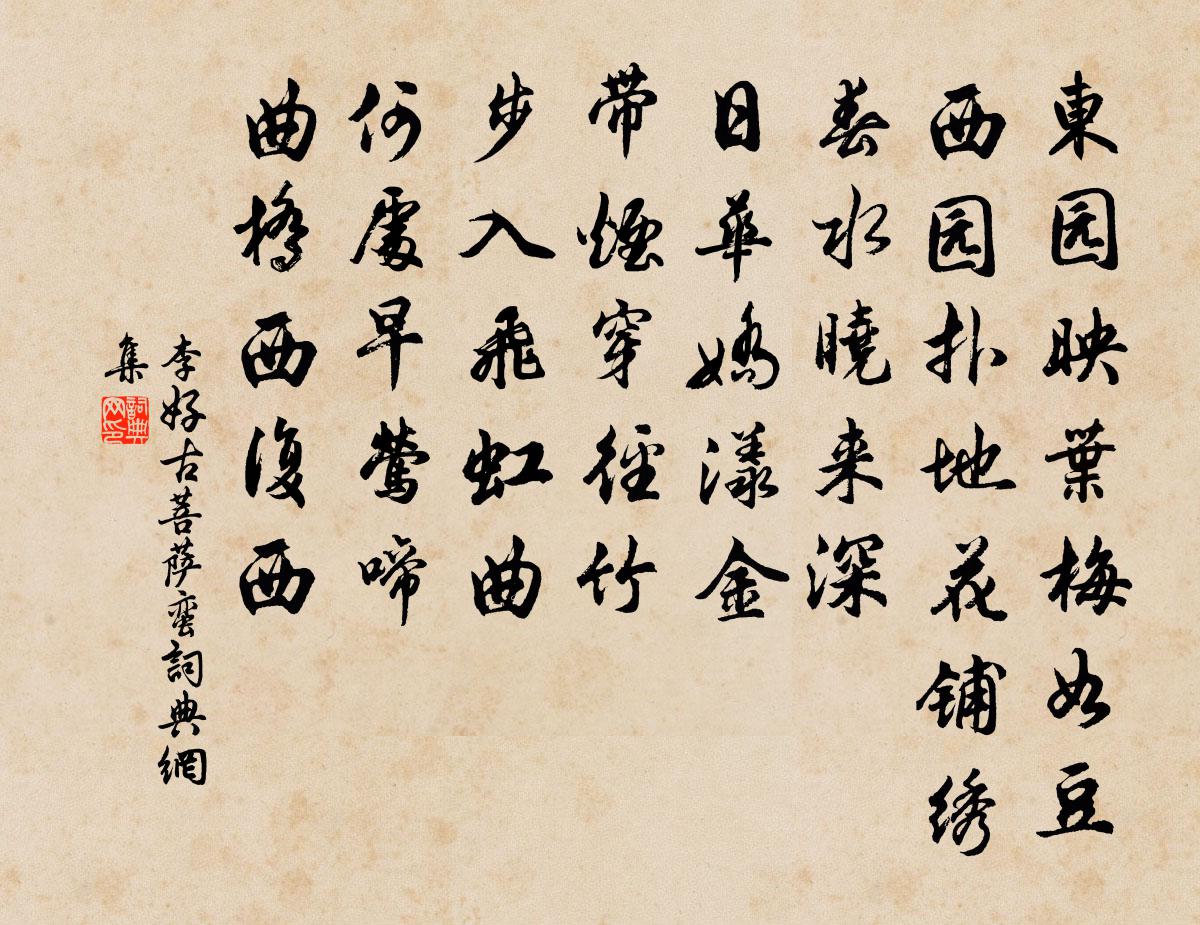 東园映葉梅如豆
西园扑地花铺绣
春水曉来深
日華嬌漾金
帶煙穿徑竹
步入飛虹曲
何處早莺啼
曲橋西復西
李好古菩萨蛮詞典網
集
詞典
网印